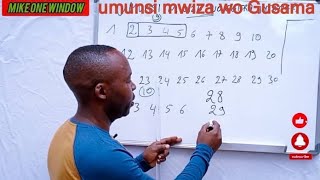 MIKE ONE WINDOW
umunsi mwiza wo Gusama
1 2 3 4 5 6 7 8 9 10
12 13 14 15 16 17 18 19 20
23 24 25 26 27 28 29 30
10 28
3 4 5 6 29